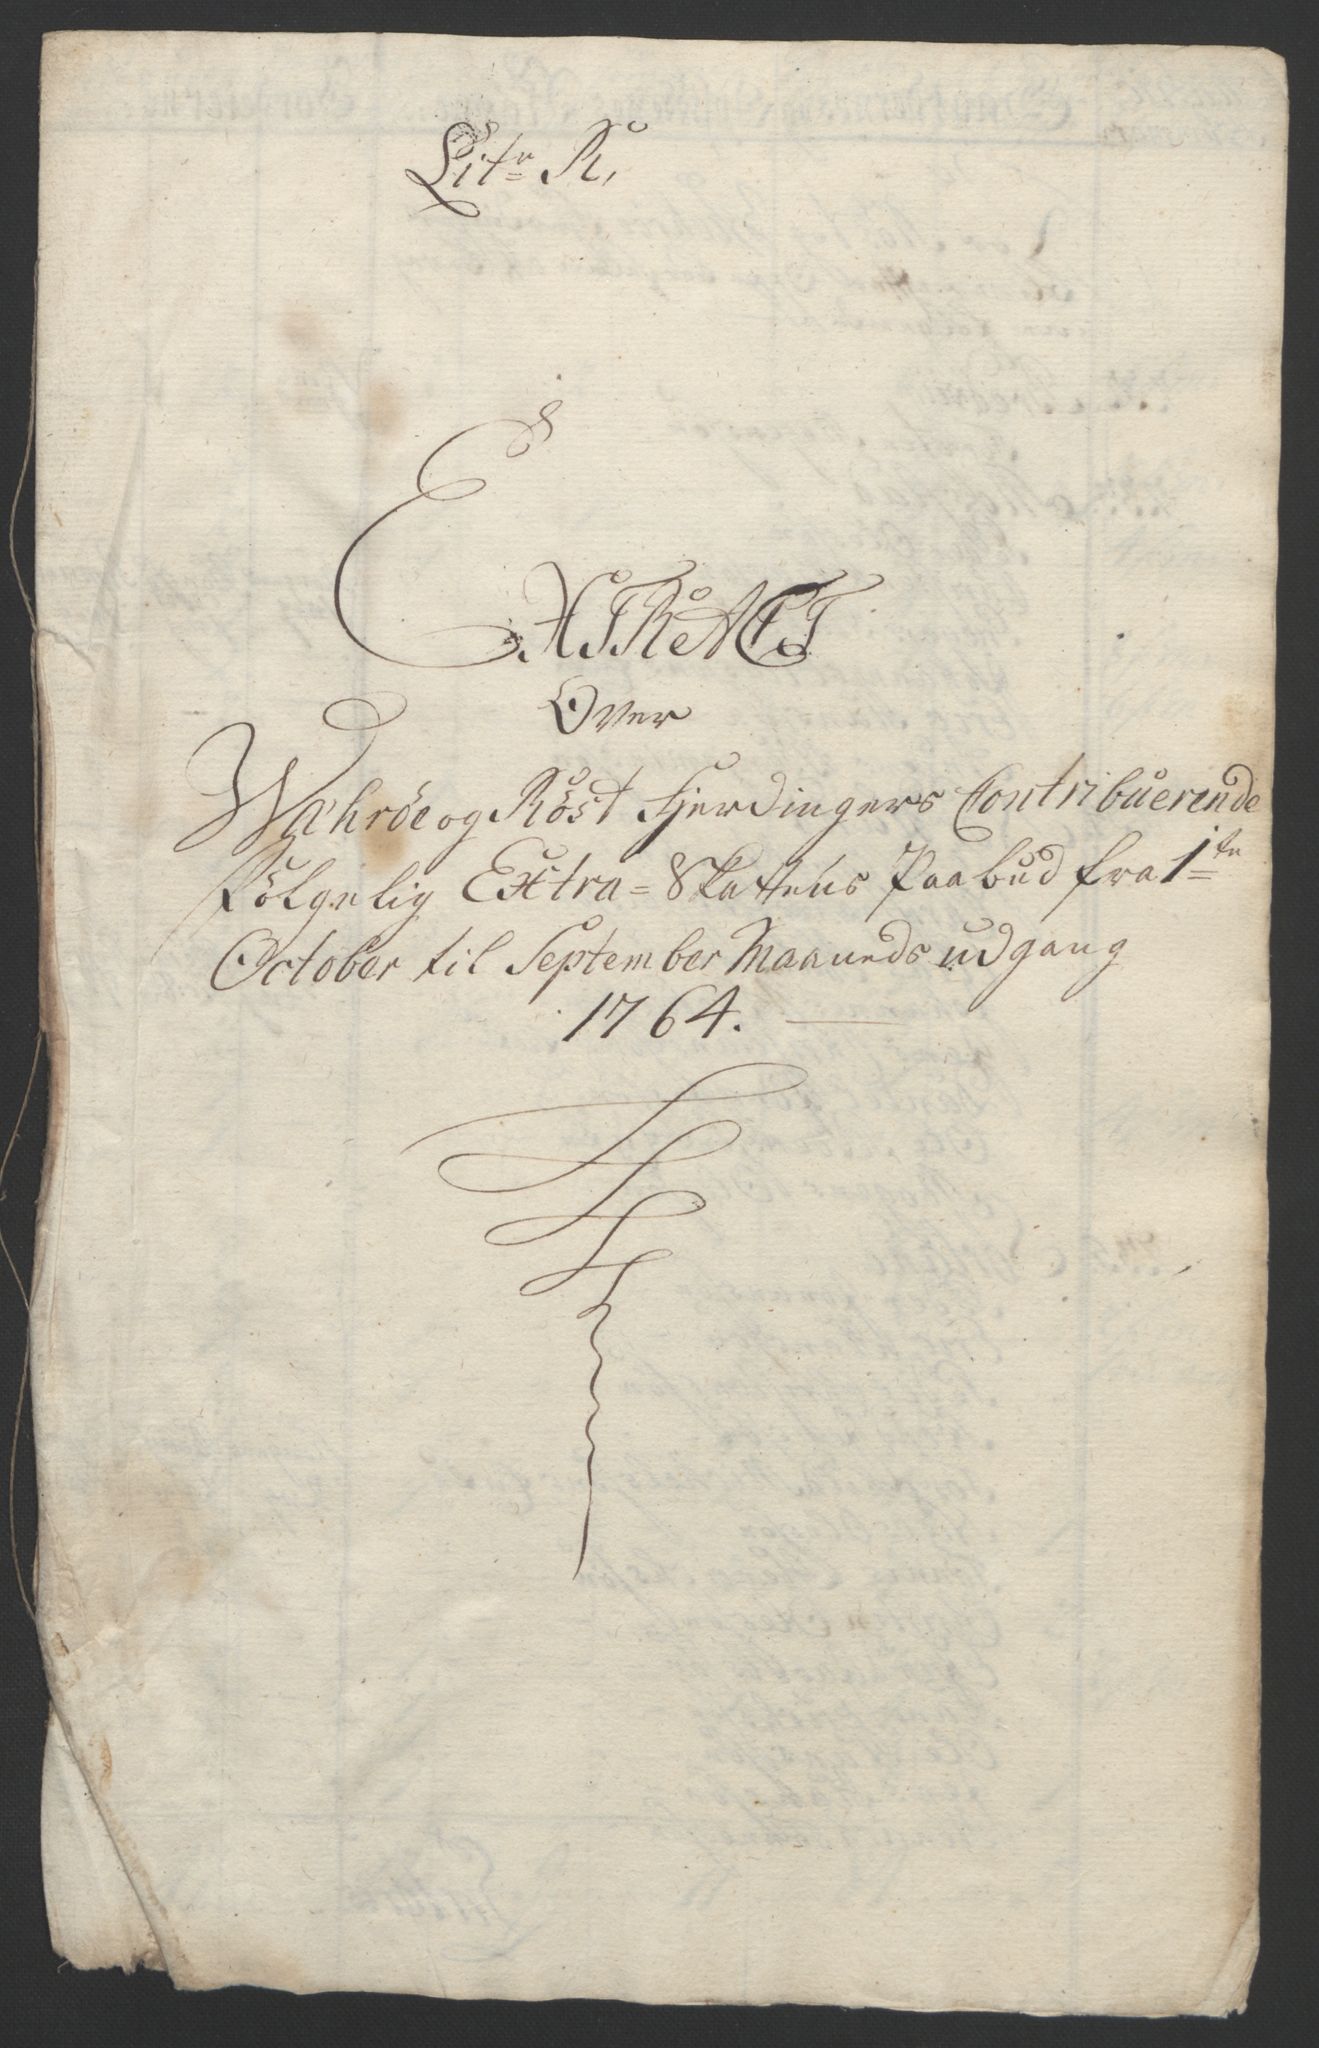 Litr R,
EXTRACT
Over
Wahröe og Röst Fjerdingers Contribuerende
Fölgelig Extra=Skattens Paabud fra 1te
October til September Maaneds udgang
1764.